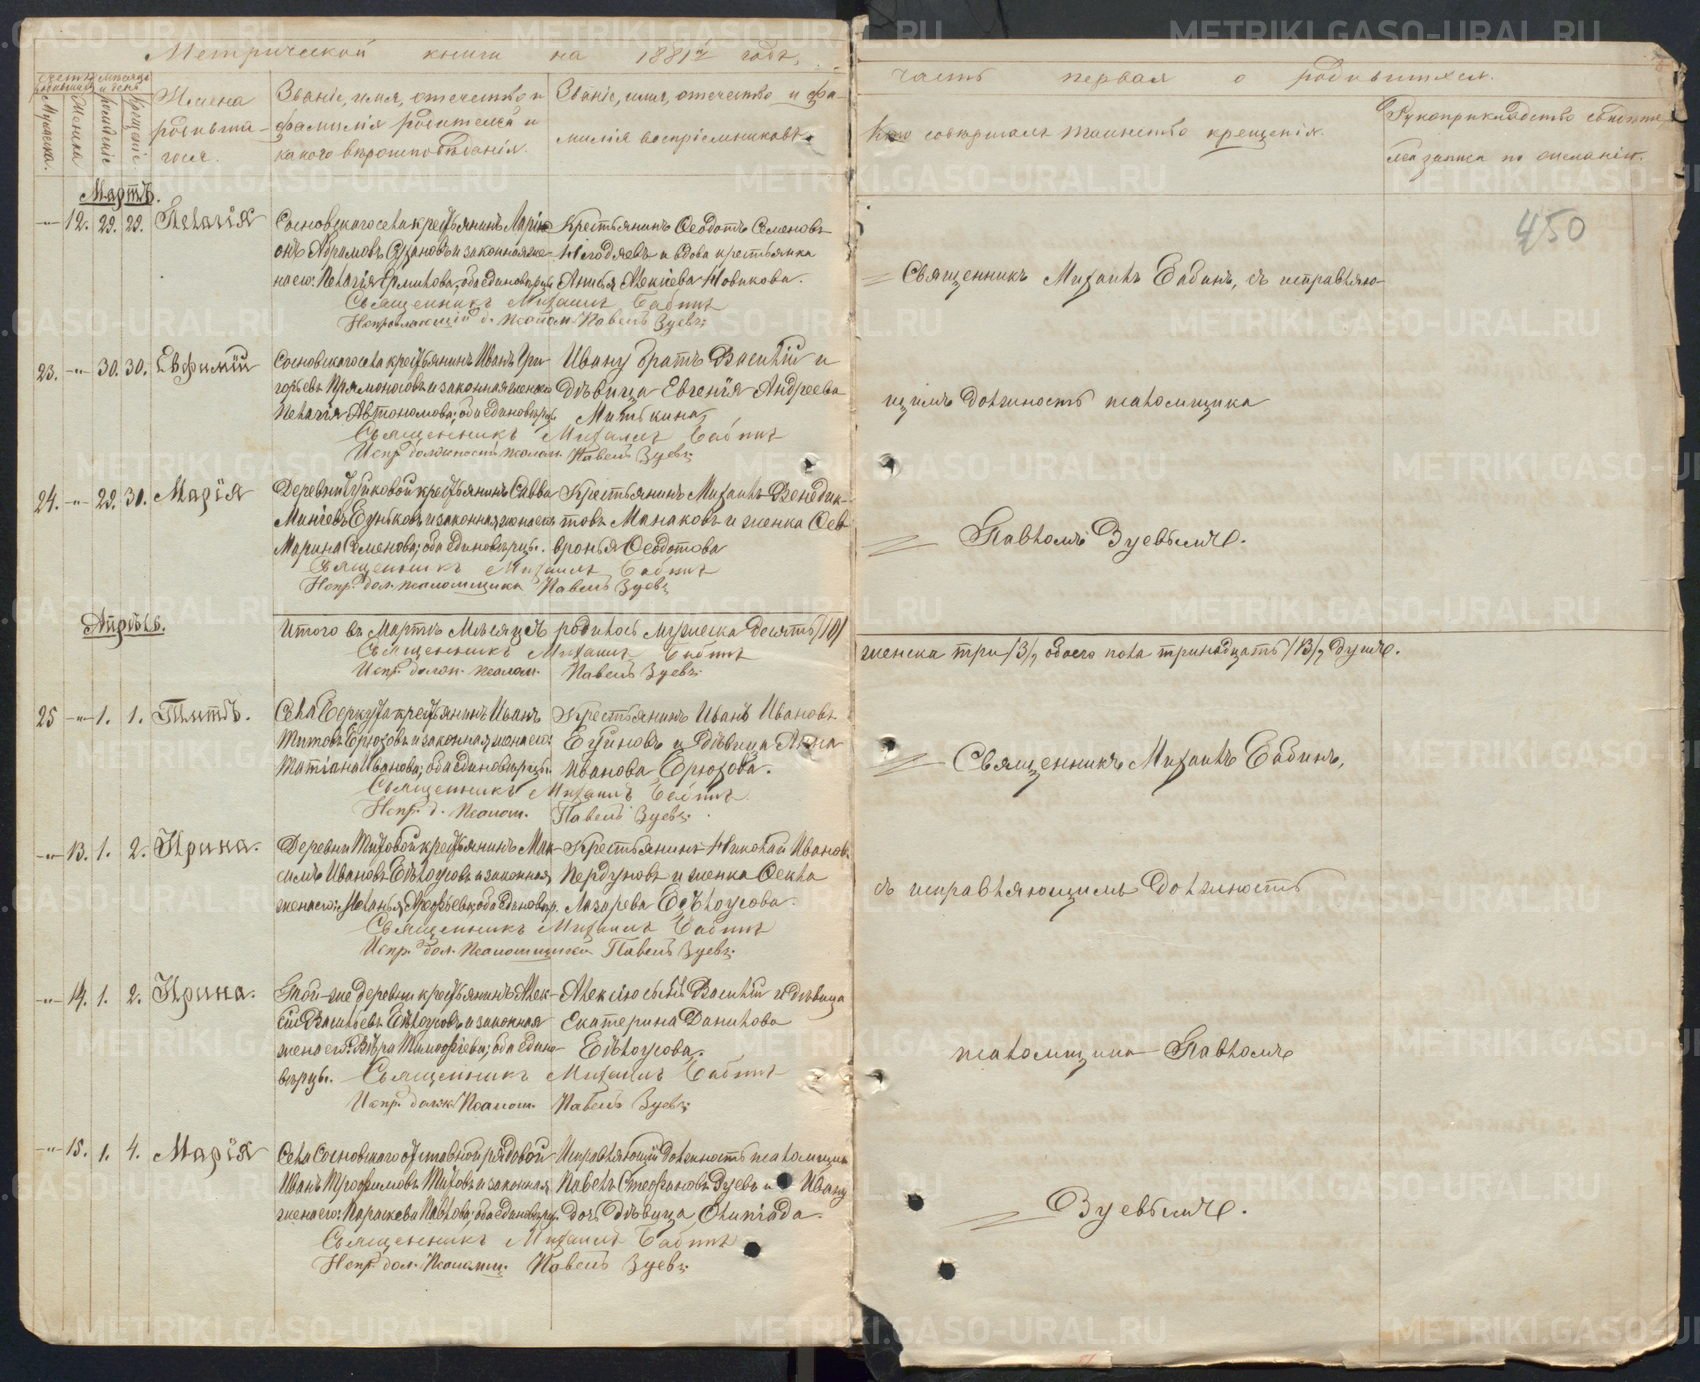 Метрической книги на 1881й годъ,
счетъ родившихся
Мѣсяцъ и день
Мужеска.
Женска
рожденіе
Крещеніе
Имена
родивша-
гося.
Званіе, имя, отечество и
фамилія родителей и
какого вѣроисповѣданія.
Званіе, имя, отечество и фа-
милія воспріемниковъ.
Мартъ.
-"- 12. 29. 29. Пелагія
Сосновскаго села крестьянинъ Ларі-
онъ Абрамовъ и законная же-
на его: Пелагія Ермилова, оба единовѣрцы
Крестьянинъ Ѳеодотъ Семеновъ
Негодяевъ и вдова крестьянка
Анисья Алексіева Новикова.
Священникъ Михаилъ Бабинъ
Исправляющій д. псалом. Павелъ Зуевъ
23. -"- 30. 30. Евфимій
Сосновскаго села крестьянинъ Иванъ Гри-
горьевъ Прямоносовъ и законная жена его
Пелагія Автономова; оба единовѣрцы.
Ивану братъ Василій и
дѣвица Евгенія Андреева
Митькина,
Священникъ Михаилъ Бабинъ
Испр. должность псалом. Павелъ Зуевъ
24. -"- 29. 30. Марія
Деревни крестьянинъ Савва
и законная жена его
Марина Семенова; оба единовѣрцы.
Крестьянинъ Михаилъ Венедик-
товъ Манаковъ и женка Ѳев-
ронья Ѳеодотова
Священникъ Михаилъ Бабинъ
Испр. дол. псаломщика Павелъ Зуевъ
Апрѣль.
Итого въ Мартѣ Мѣсяцѣ родилось мужеска десять /10/
Священникъ Михаилъ Бабинъ
Испр. должн. псалом. Павелъ Зуевъ
25 -"- 1. 1. Титъ.
Села крестьянинъ Иванъ
Титовъ и законная жена его:
Татіана Иванова; оба единовѣрцы.
Крестьянинъ Иванъ Ивановъ
и дѣвица Анна
Иванова
Священникъ Михаилъ Бабинъ
Испр. д. псалом. Павелъ Зуевъ
-"- 13. 1. 2. Ирина.
Деревни крестьянинъ Мак-
симъ Ивановъ Бѣлоусовъ и законная
жена его: оба единовѣр.
Крестьянинъ Николай Ивановъ
Пердуновъ и женка Ѳекла
Лазарева Бѣлоусова.
Священникъ Михаилъ Бабинъ
Испр. дол. псаломщика Павелъ Зуевъ
-"- 14. 1. 2. Ирина.
Той-же деревни крестьянинъ Алек-
сій Васильевъ Бѣлоусовъ и законная
жена его: Вѣра Тимоѳіева; оба едино-
вѣрцы.
Алексію сынъ Василій и дѣвица
Екатерина Данилова
Бѣлоусова.
Священникъ Михаилъ Бабинъ
Испр. долж. псалом. Павелъ Зуевъ
-"- 15. 1. 4. Марія
Села Сосновскаго отставной рядовой
Иванъ Трофимовъ и законная
жена его: Параскева Павлова; оба единовѣрцы.
Исправляющій должность псаломщика
Павелъ Стефановъ Зуевъ и Ивану
дочь дѣвица Олимпіада.
Священникъ Михаилъ Бабинъ
Испр. дол. псаломщ. Павелъ Зуевъ
часть первая о родившихся.
Кто совершалъ таинство крещенія.
Рукоприкладство свидѣте-
лей записи по желанію.
450
Священникъ Михаилъ Бабинъ, съ исправляю-
щимъ должность псаломщика
Павломъ Зуевымъ.
женска три /3/, обоего пола тринадцать /13/, душъ.
Священникъ Михаилъ Бабинъ,
съ исправляющимъ должность
псаломщика Павломъ
Зуевымъ.
METRIKI.GASO-URAL.RU